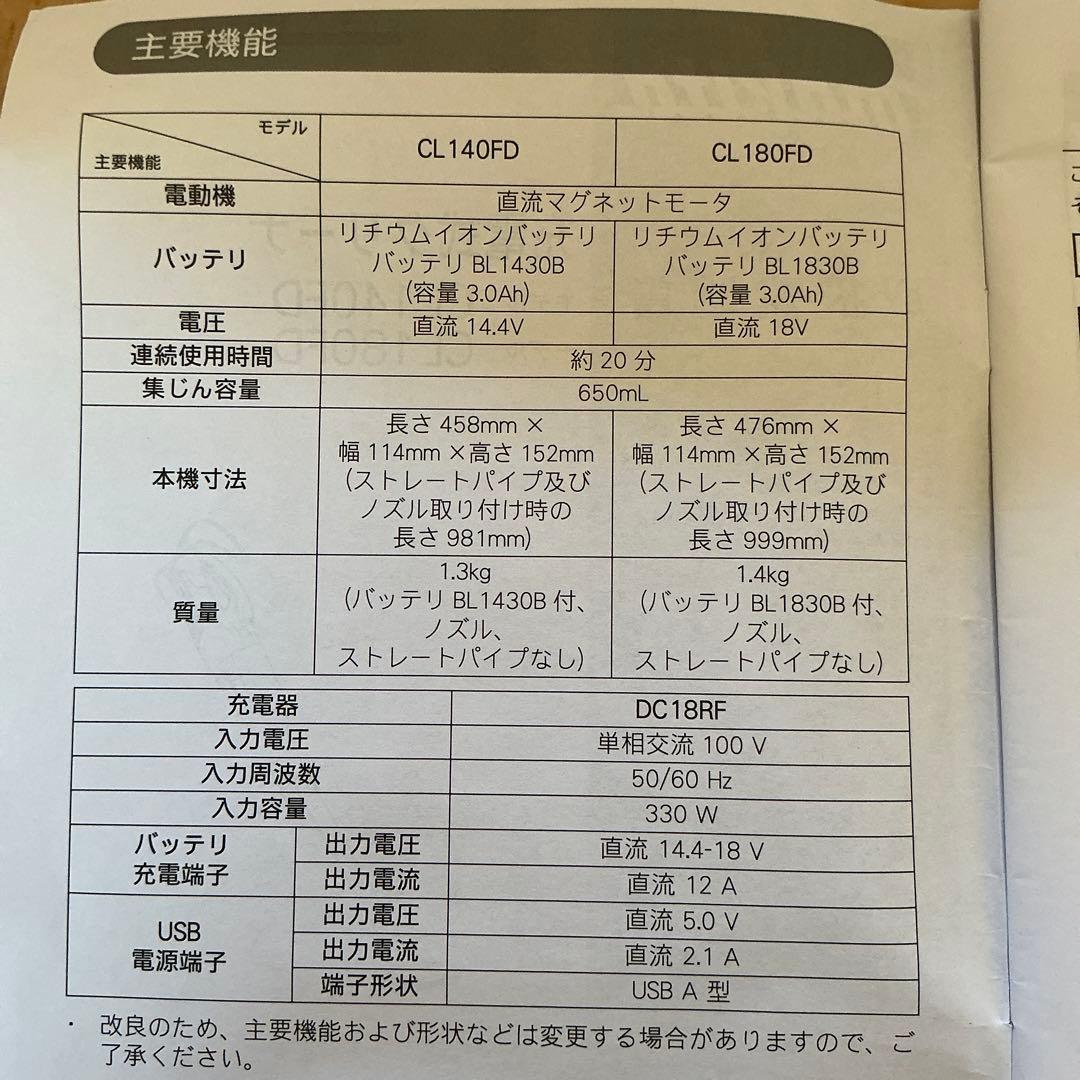 主要機能
モデル
主要機能
CL140FD
CL180FD
電動機
直流マグネットモータ
バッテリ
リチウムイオンバッテリ
バッテリ BL1430B
(容量 3.0Ah)
リチウムイオンバッテリ
バッテリ BL1830B
(容量 3.0Ah)
電圧
直流 14.4V
直流 18V
連続使用時間
約 20 分
集じん容量
650mL
本機寸法
長さ 458mm ×
幅 114mm ×高さ 152mm
(ストレートパイプ及び
ノズル取り付け時の
長さ 981mm)
長さ 476mm ×
幅 114mm ×高さ 152mm
(ストレートパイプ及び
ノズル取り付け時の
長さ 999mm)
質量
1.3kg
(バッテリ BL1430B 付、
ノズル、
ストレートパイプなし)
1.4kg
(バッテリ BL1830B 付、
ノズル、
ストレートパイプなし)
充電器
DC18RF
入力電圧
単相交流 100 V
入力周波数
50/60 Hz
入力容量
330 W
バッテリ
充電端子
出力電圧
直流 14.4-18 V
出力電流
直流 12 A
USB
電源端子
出力電圧
直流 5.0 V
出力電流
直流 2.1 A
端子形状
USB A 型
・ 改良のため、主要機能および形状などは変更する場合がありますので、ご
了承ください。